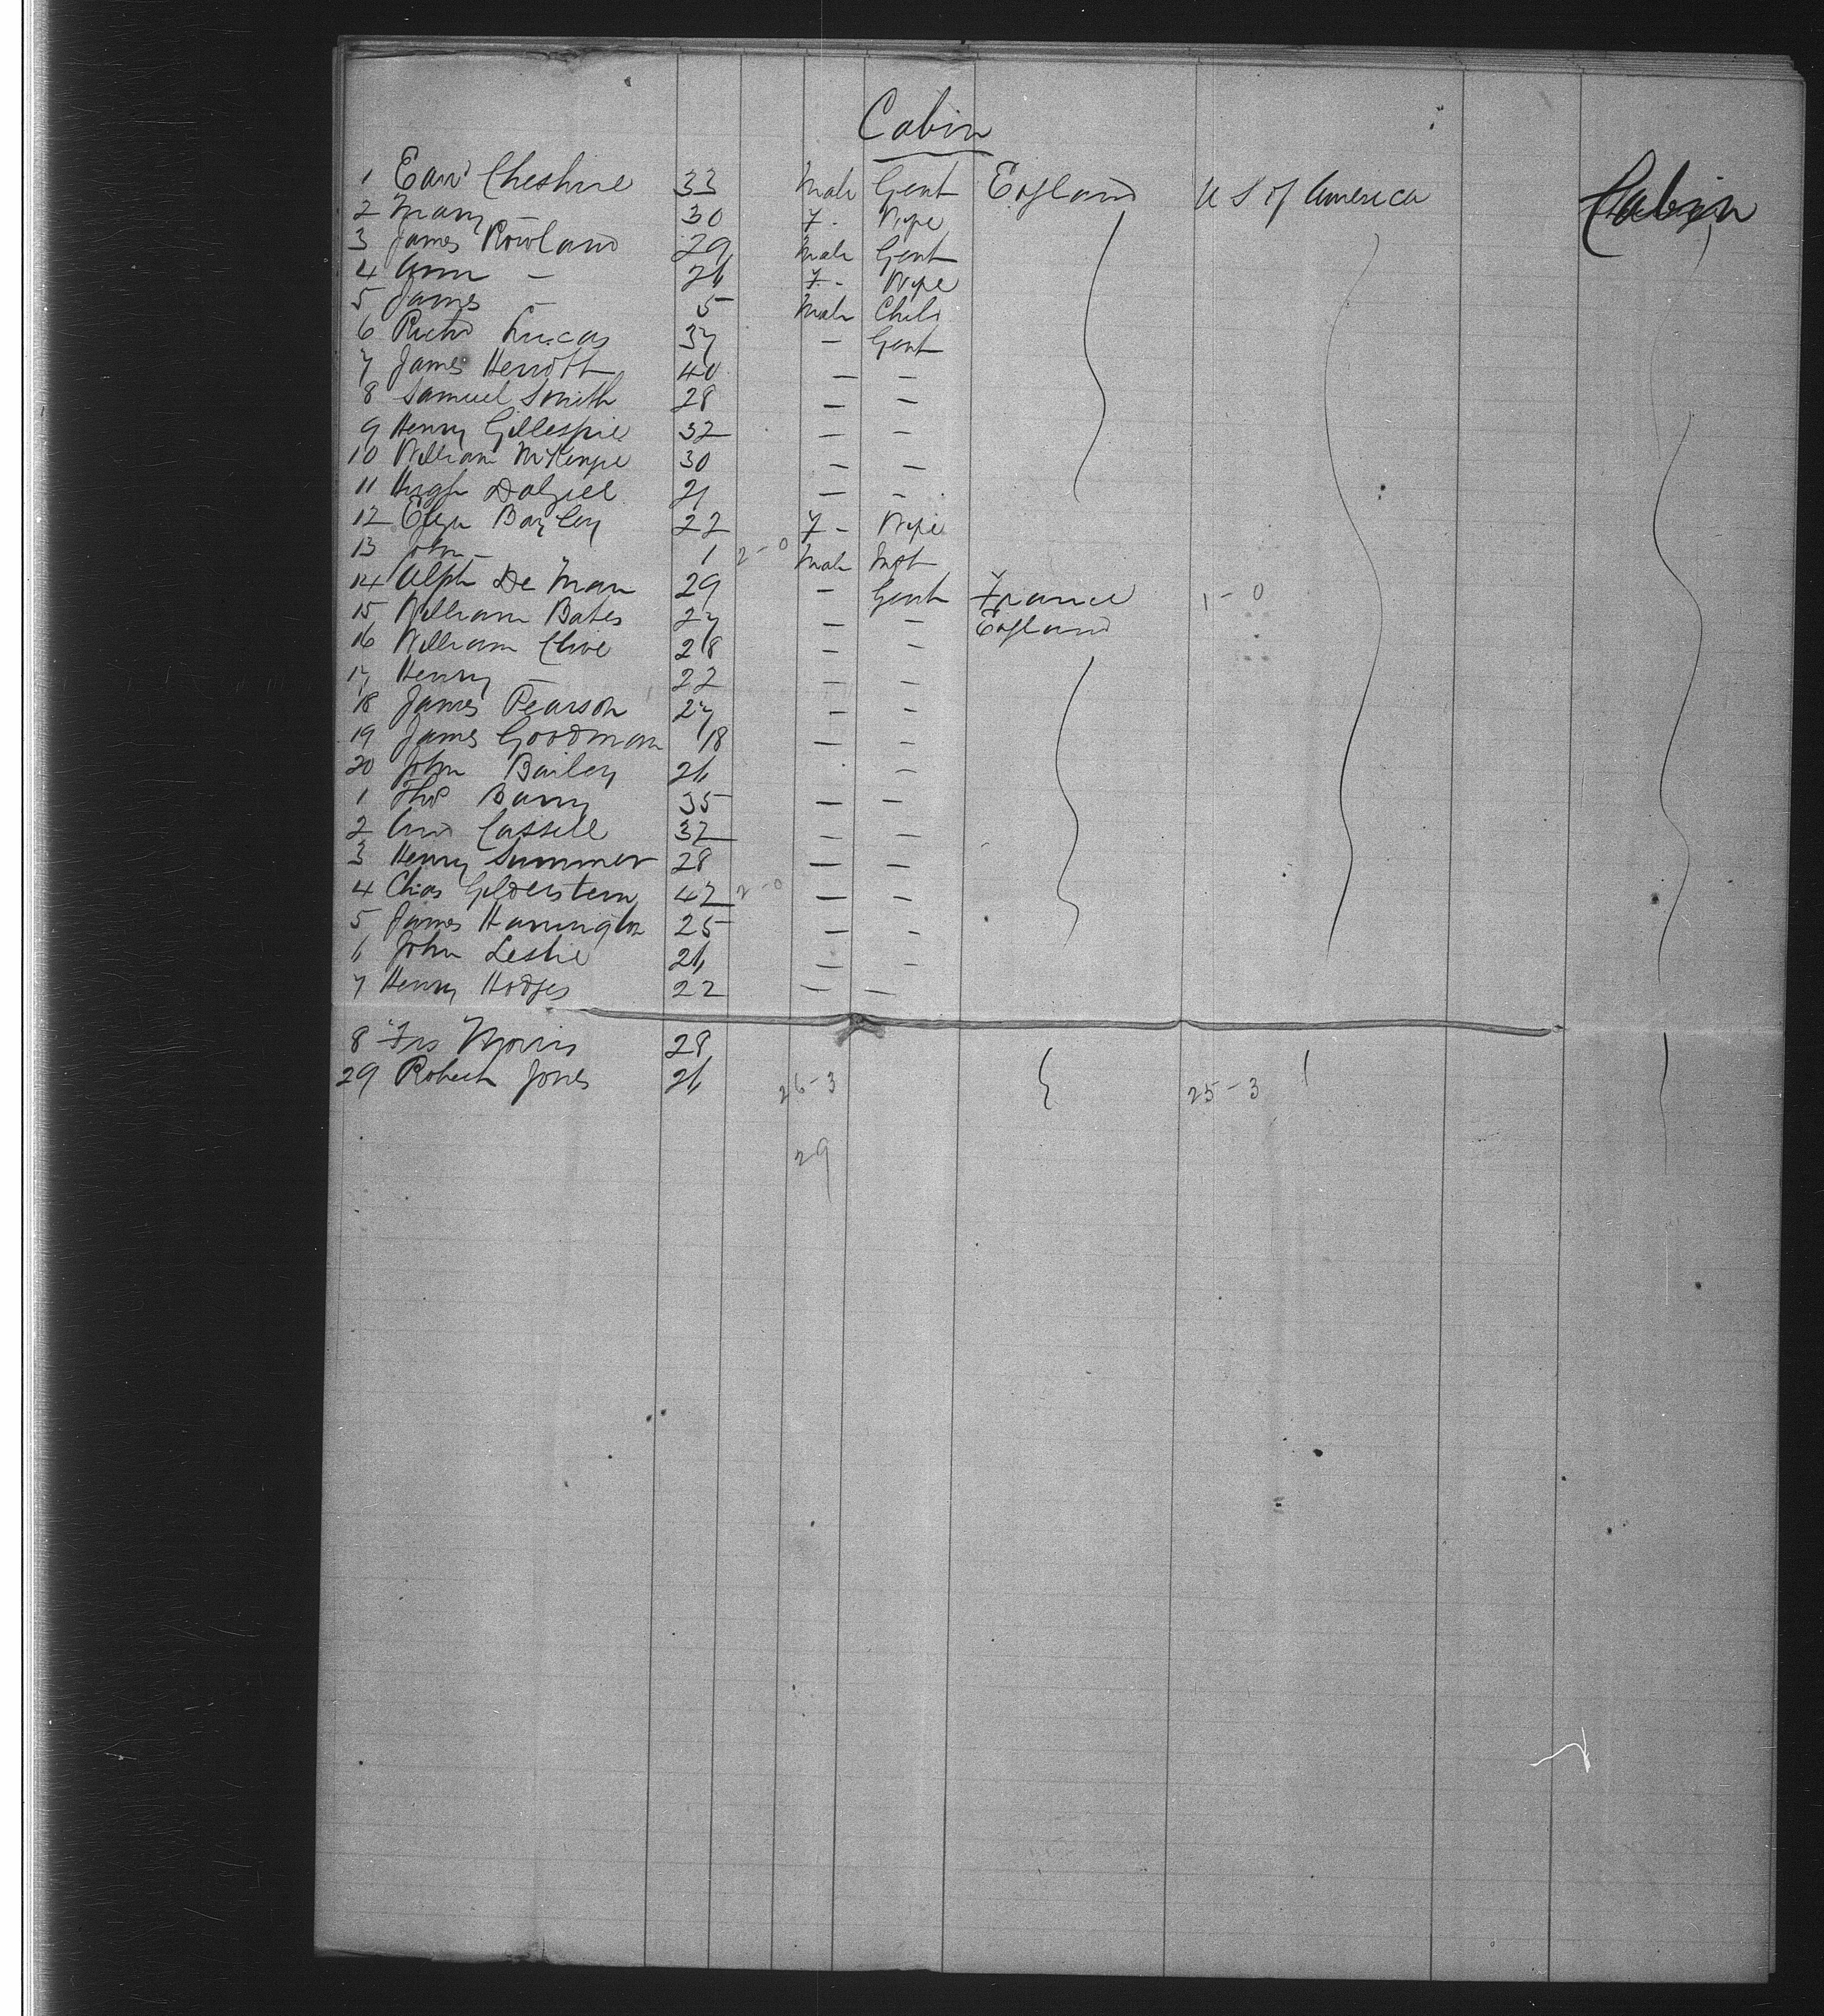 Cabin
1 Edwd Cheshire 33 Male Gent England U S of America Cabin
2 Mary - 30 F - Wife
3 James Rowland 29 Male Gent
4 Ann - 26 F - Wife
5 James - 5 Male Child
6 Richd Lucas 37 - Gent
7 James Herriott 40 - -
8 Samuel Smith 28 - -
9 Henry Gillespie 32 - -
10 William McKenzie 30 - -
11 Hugh Dalziel 21 - -
12 Eliza Bayley 22 F - Wife
13 John - 1 2-0 Male Inft
14 Alph De Man 29 - Gent France 1-0
15 William Bates 27 - - England
16 William Clive 28 - -
17 Henry - 22 - -
18 James Pearson 27 - -
19 James Goodman 18 - -
20 John Bailey 26 -
1 Thos Barry 35 - -
2 And Cassell 32 - -
3 Henry Summer 28 - -
4 Chas Gilderstern 42 2-0 - -
5 James Harrington 25 - -
6 John Leslie 26 - -
7 Henry Hodges 22 - -
8 Frs Morris 28
29 Robert Jones 26 26-3 25-3
29